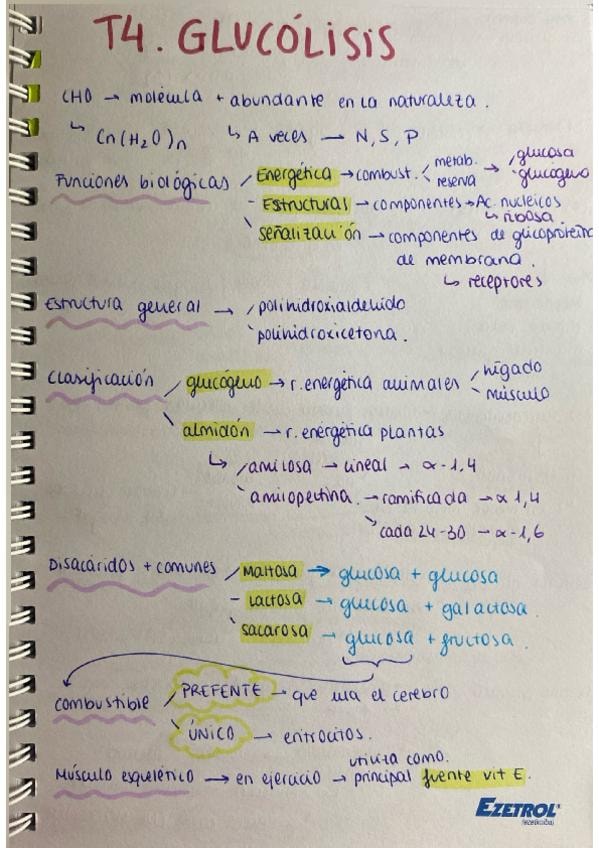 T4. GLUCÓLISIS
CHO → molécula + abundante en la naturaleza.
↳ Cn(H₂O)n ↳ A veces → N, S, P
Funciones biológicas / Energética → combust. < metab. reserva → glucosa glucógeno
- Estructural → componentes → Ac. nucleicos
↳ ribosa.
\ señalización → componentes de glicoproteína
de membrana.
↳ receptores
Estructura general → / polihidroxialdehido
\ polihidroxicetona.
Clasificación / glucógeno → r. energética animales / hígado
\ músculo
\ almidón → r. energética plantas
↳ / amilosa → lineal → α-1,4
\ amilopectina. → ramificada → α 1,4
↘ cada 24-30 → α-1,6
Disacáridos + comunes / Maltosa → glucosa + glucosa
- Lactosa → glucosa + galactosa.
\ sacarosa → glucosa + fructosa.
combustible / PREFENTE → que usa el cerebro
\ ÚNICO → eritrocitos.
utiliza como.
Músculo esquelético → en ejercicio → principal fuente vit E.
EZETROL®
(ezetimiba)